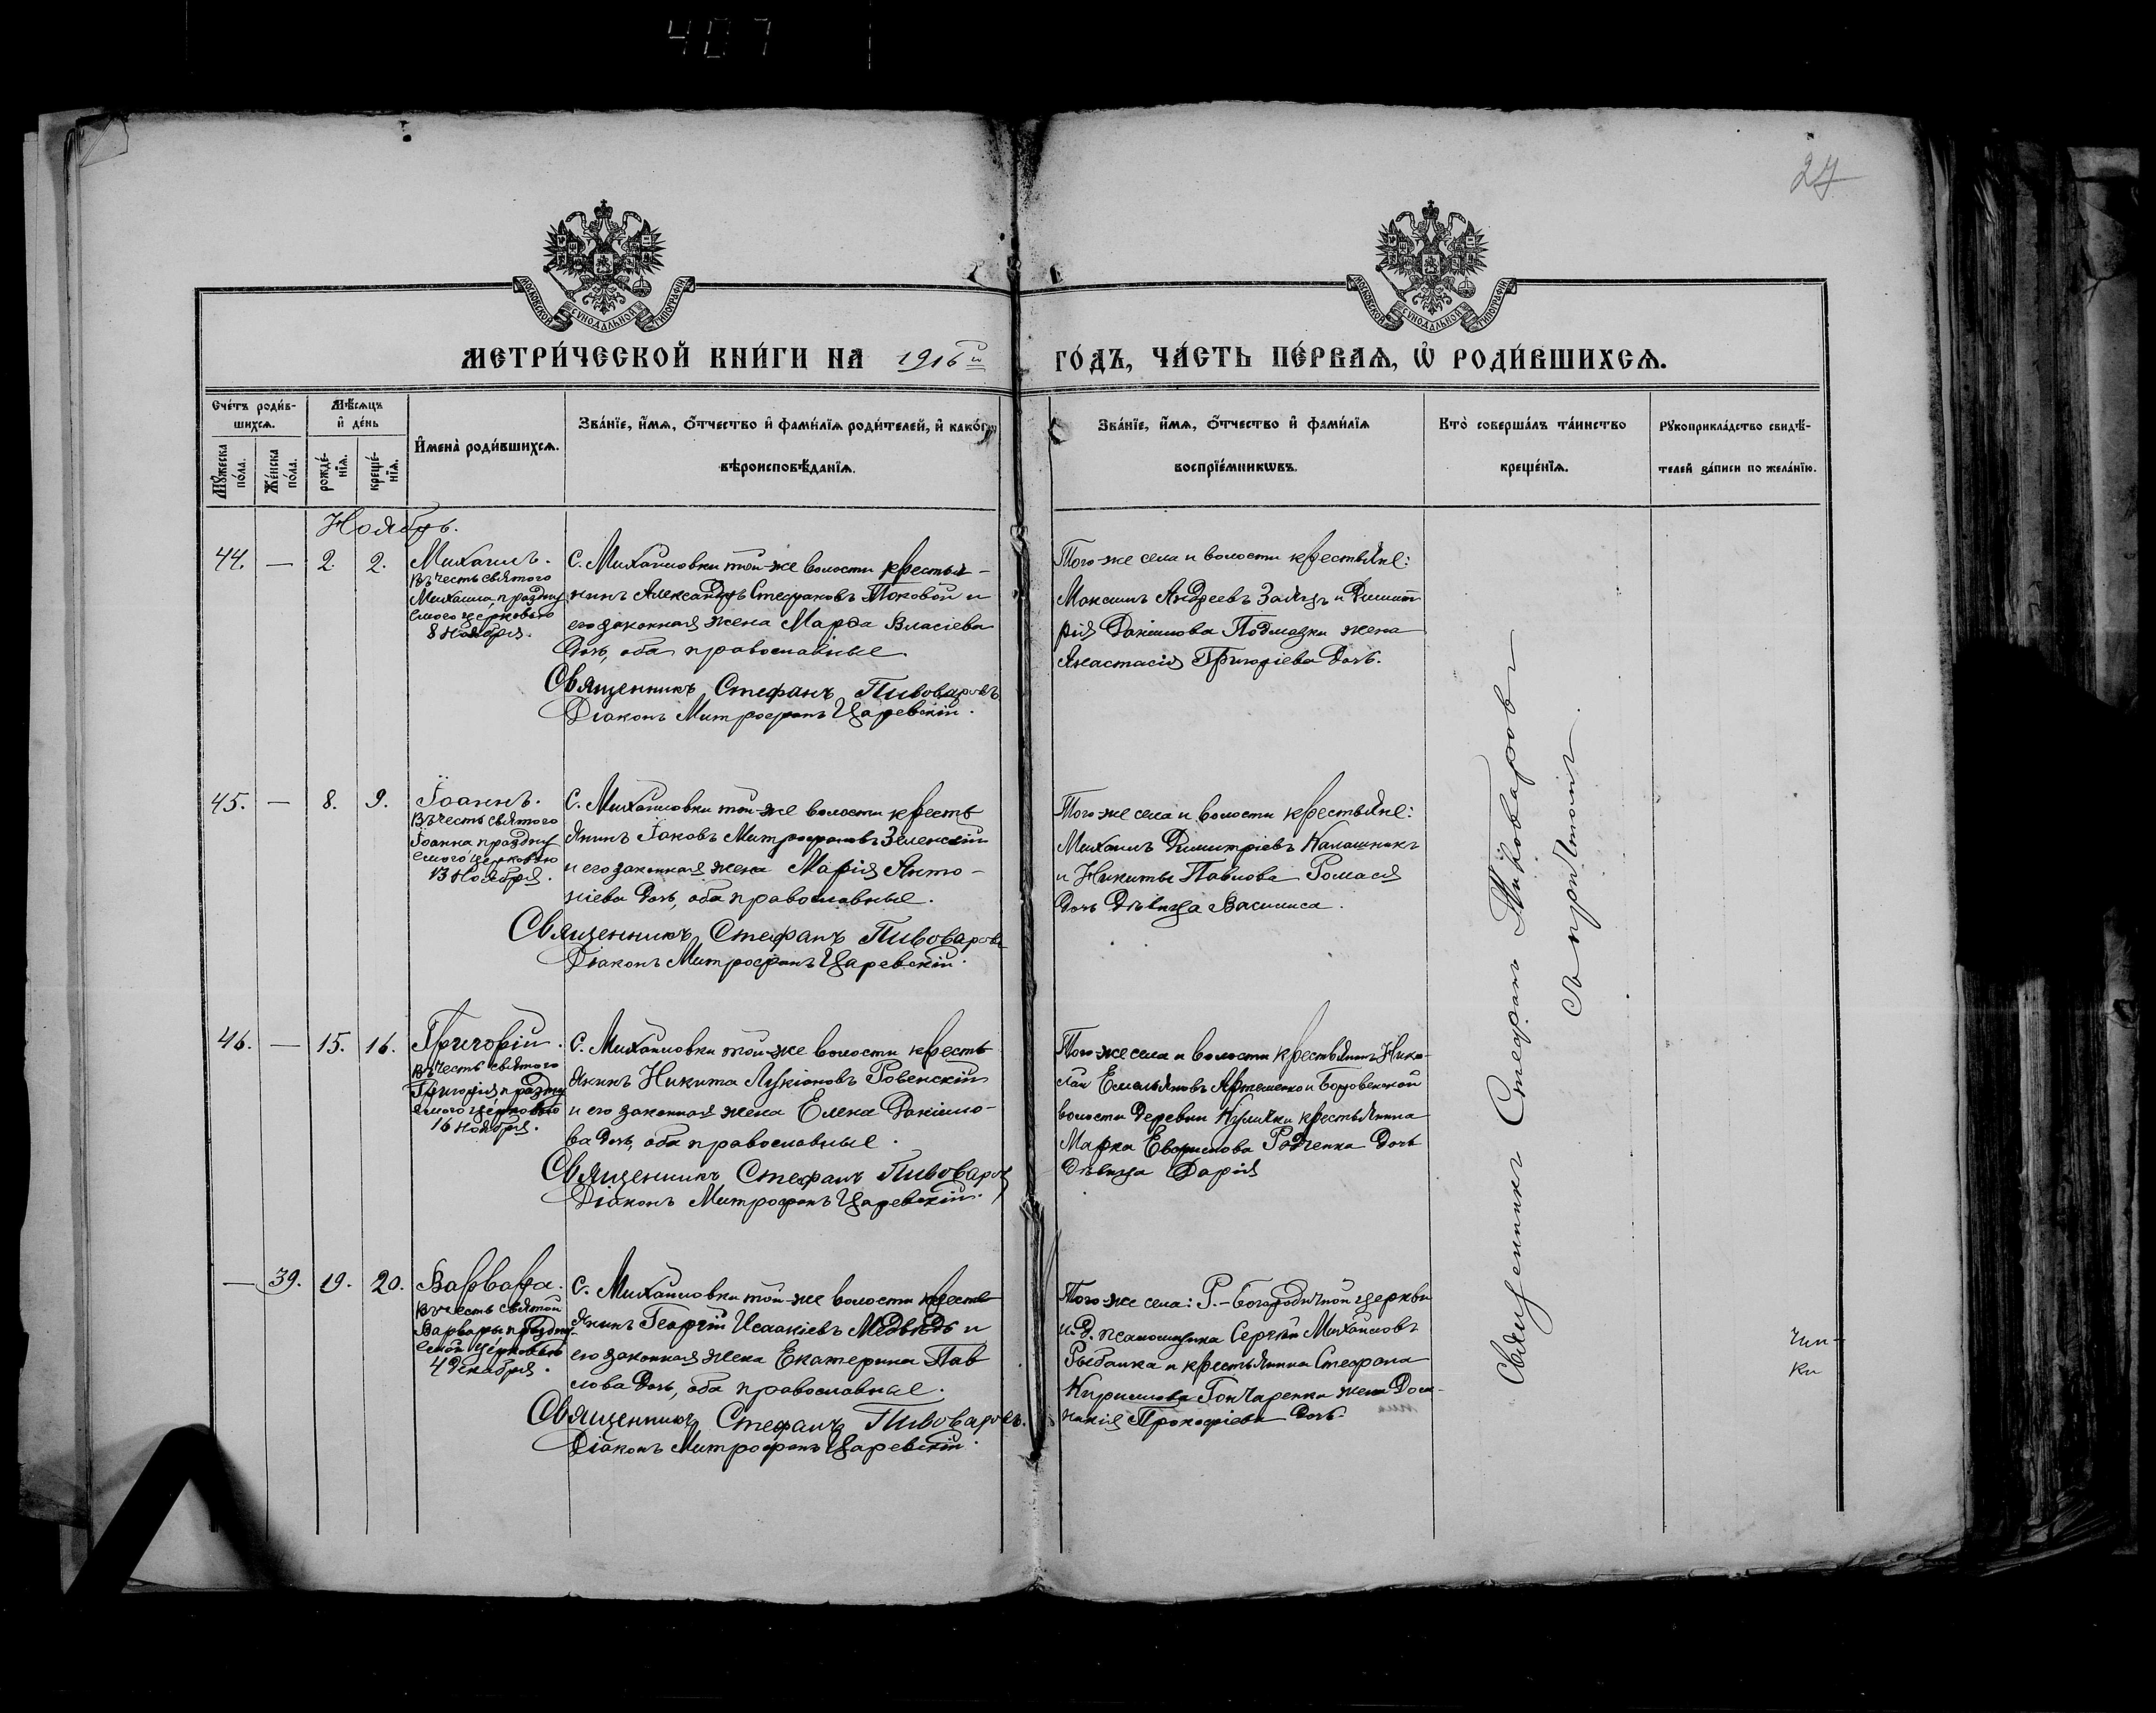 407
27
МОСКОВСКОЙ СУНОДАЛЬНОЙ ТИПОГРАФІИ
МОСКОВСКОЙ СУНОДАЛЬНОЙ ТИПОГРАФІИ
МЕТРИ́ЧЕСКОЙ КНИ́ГИ НА 1916й ГО́ДЪ, ЧА́СТЬ ПЕ́РВАѦ, Ѡ҆ РОДИ́ВШИХСѦ.
Сче́тъ роди́в-
шихсѧ.
Мꙋ́жеска по́ла.
Же́нска по́ла.
Мѣ́сѧцъ
и҆ де́нь
рожде́-
нїѧ.
креще́-
нїѧ.
И҆мена̀ роди́вшихсѧ.
Зва́нїе, и҆́мѧ, ѻ҆́тчество и҆ фами́лїѧ роди́телей, и҆ како́гѡ
вѣроисповѣ́данїѧ.
Зва́нїе, и҆́мѧ, ѻ҆́тчество и҆ фами́лїѧ
воспрїе́мникѡвъ.
Кто̀ соверша́лъ та́инство
креще́нїѧ.
Рꙋкоприкла́дство свидѣ́-
телей за́писи по жела́нїю.
Ноябрь.
44. — 2. 2.
Михаилъ.
Въ честь святого
Михаила, праздну
емого церковью
8 Ноября.
С. Михайловки той-же волости крестья-
нинъ Александръ Стефановъ Токовой и
его законная жена Марѳа Власіева
дочь, оба православные.
Священникъ Стефанъ Пивоваровъ
Діаконъ Митрофанъ Царевскій.
Того-же села и волости крестьяне:
Максимъ Андреевъ Заяцъ и Димит
рія Даніилова Подмазки жена
Анастасія Григоріева дочь.
45. — 8. 9.
Іоаннъ.
Въ честь святого
Іоанна праздну
емого церковью
13 Ноября.
С. Михайловки той-же волости кресть
янинъ Іаковъ Митрофановъ Зеленскій
и его законная жена Марія Анто-
ніева дочь, оба православные.
Священникъ Стефанъ Пивоваровъ
Діаконъ Митрофанъ Царевскій.
Того же села и волости крестьяне:
Михаилъ Димитріевъ Калашникъ
и Никиты Павлова Ромася
дочь дѣвица Василиса.
46. — 15. 16.
Григорій.
Въ честь святого
Григорія, праздну
емого церковью
16 Ноября.
С. Михайловки той-же волости кресть
янинъ Никита Лукіановъ Ровенскій
и его законная жена Елена Даніило-
ва дочь, оба православные.
Священникъ Стефанъ Пивоваровъ
Діаконъ Митрофанъ Царевскій.
Того-же села и волости крестьянинъ Нико-
лай Емельяновъ Артеменко и
волости деревни крестьянина
Марка дочь
дѣвица Дарія
— 39. 19. 20.
Варвара.
Въ честь святой
Варвары праздну-
емой церковью
4 Декабря.
С. Михайловки той-же волости кресть
янинъ Георгій Исаакіевъ Медвѣдь и
его законная жена Екатерина Пав
лова дочь, оба православные.
Священникъ Стефанъ Пивоваровъ.
Діаконъ Митрофанъ Царевскій.
Того-же села: Р.-Богородичной церкви
и. д. псаломщика Сергѣй Михайловъ
Рыбалка и крестьянина Стефана
Кириллова Гончаренка жена Дом-
никія Прокофіева дочь.
Священникъ Стефанъ Пивоваровъ
съ причтомъ.